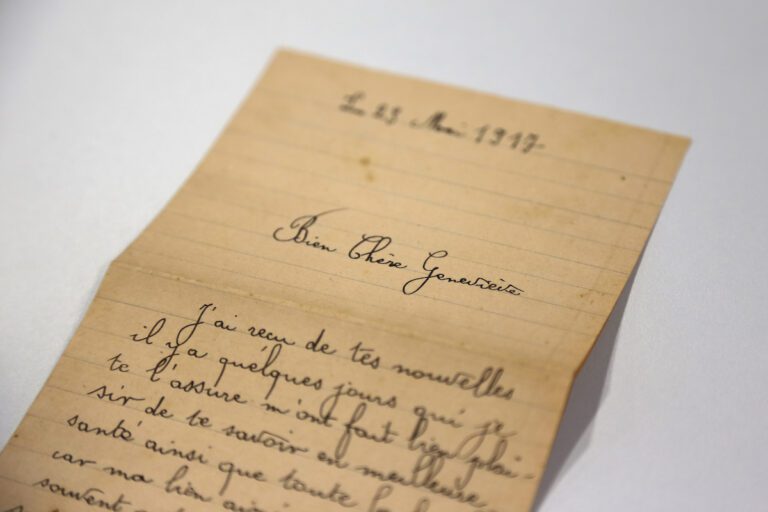 Le 23 Mai 1917
Bien Chère Geneviève
J'ai reçu de tes nouvelles
il y a quélques jours qui je
te l'assure m'ont fait bien plai-
sir de te savoir en meilleure
santé ainsi que toute la
car ma bien
souvent